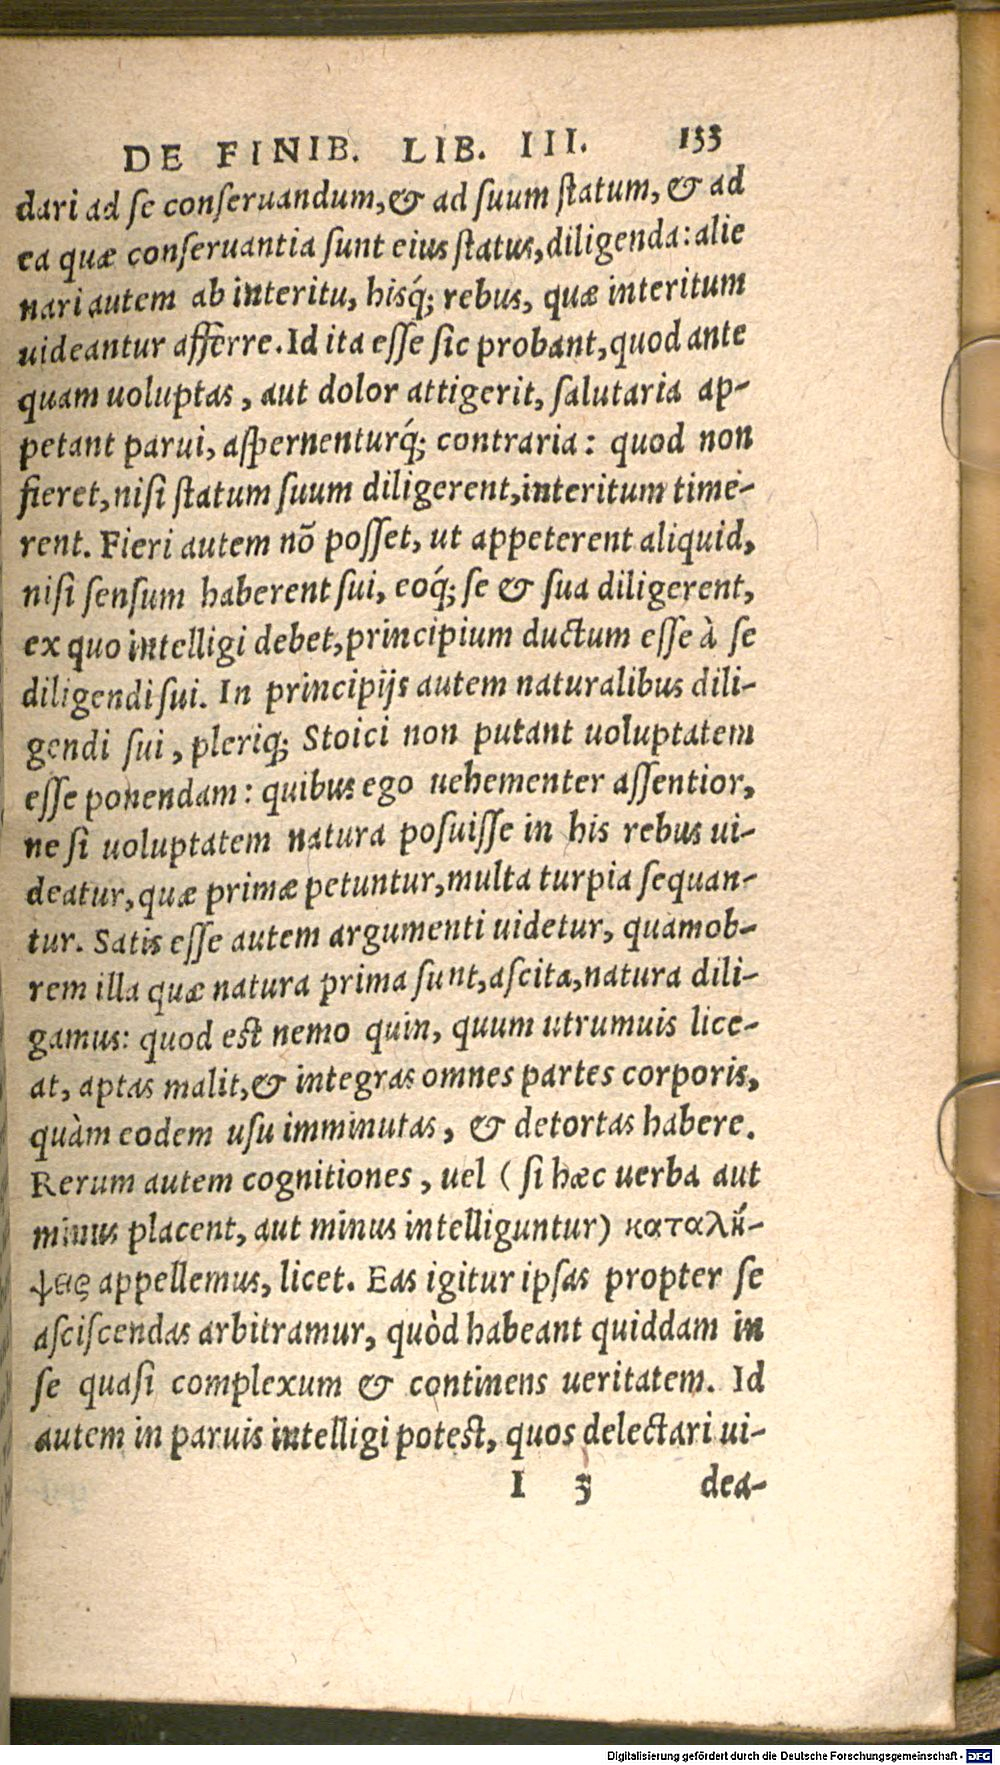 DE FINIB. LIB. III. 133
dari ad se conseruandum, & ad suum statum, & ad
ea quæ conseruantia sunt eius status, diligenda: alie
nari autem ab interitu, hisq́; rebus, quæ interitum
uideantur afferre. Id ita esse sic probant, quod ante
quam uoluptas, aut dolor attigerit, salutaria ap-
petant parui, aspernenturq́; contraria: quod non
fieret, nisi statum suum diligerent, interitum time-
rent. Fieri autem nõ posset, ut appeterent aliquid,
nisi sensum haberent sui, eoq́; se & sua diligerent,
ex quo intelligi debet, principium ductum esse à se
diligendi sui. In principijs autem naturalibus dili-
gendi sui, pleriq; Stoici non putant uoluptatem
esse ponendam: quibus ego uehementer assentior,
ne si uoluptatem natura posuisse in his rebus ui-
deatur, quæ primæ petuntur, multa turpia sequan-
tur. Satis esse autem argumenti uidetur, quamob-
rem illa quæ natura prima sunt, ascita, natura dili-
gamus: quod est nemo quin, quum utrumuis lice-
at, aptas malit, & integras omnes partes corporis,
quàm eodem usu imminutas, & detortas habere.
Rerum autem cognitiones, uel (si hæc uerba aut
minus placent, aut minus intelliguntur) καταλή-
ψεις appellemus, licet. Eas igitur ipsas propter se
asciscendas arbitramur, quòd habeant quiddam in
se quasi complexum & continens ueritatem. Id
autem in paruis intelligi potest, quos delectari ui-
I 3 dea-
Digitalisierung gefördert durch die Deutsche Forschungsgemeinschaft - DFG